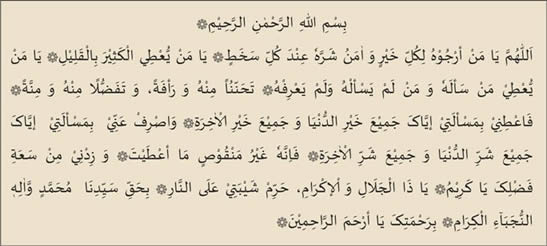 بِسْمِ اللهِ الرَّحْمٰنِ الرَّحِيْمِ۞
اَللّٰهُمَّ يَا مَنْ اَرْجُوْهُ لِكُلِّ خَيْرٍ وَ اٰمَنُ شَرَّهٗ عِنْدَ كُلِّ سَخَطٍ۞ يَا مَنْ يُّعْطِي الْكَثِيْرَ بِالْقَلِيْلِ۞ يَا مَنْ
يُّعْطِيْ مَنْ سَأَلَهٗ وَ مَنْ لَمْ يَسْأَلْهُ وَلَمْ يَعْرِفْهُ۞ تَحَنُّنًا مِنْهُ وَ رَأْفَةً، وَ تَفَضُّلًا مِنْهُ وَ مِنَّةً۞
فَاعْطِنِيْ بِمَسْأَلَتِيْ اِيَّاكَ جَمِيْعَ خَيْرِ الدُّنْيَا وَ جَمِيْعَ خَيْرِ الْاٰخِرَةِ۞ وَاصْرِفْ عَنِّيْ بِمَسْأَلَتِيْ اِيَّاكَ
جَمِيْعَ شَرِّ الدُّنْيَا وَ جَمِيْعَ شَرِّ الْاٰخِرَةِ۞ فَاِنَّهٗ غَيْرُ مَنْقُوْصٍ مَا أَعْطَيْتَ۞ وَ زِدْنِيْ مِنْ سَعَةِ
فَضْلِكَ يَا كَرِيْمُ۞ يَا ذَا الْجَلَالِ وَ الْاِكْرَامِ، حَرِّمْ شَيْبَتِيْ عَلَى النَّارِ۞ بِحَقِّ سَيِّدِنَا مُحَمَّدٍ وَّاٰلِهِ
النُّجَبَآءِ الْكِرَامِ۞ بِرَحْمَتِكَ يَا أَرْحَمَ الرَّاحِمِيْنَ۞